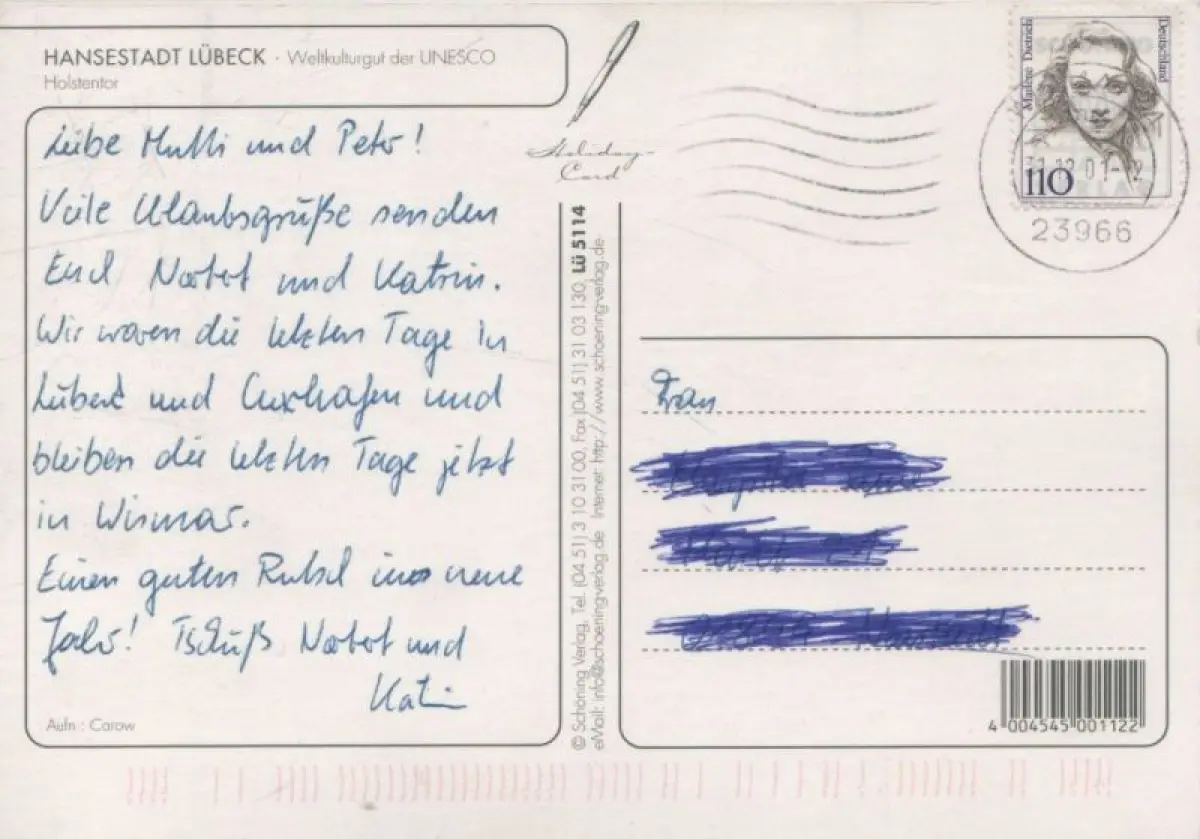 HANSESTADT LÜBECK · Weltkulturgut der UNESCO
Holstentor
Liebe Mutti und Peter!
Viele Urlaubsgrüße senden
Euch Norbert und Katrin.
Wir waren die letzten Tage in
Lübeck und Cuxhafen und
bleiben die letzten Tage jetzt
in Wismar.
Einen guten Rutsch ins neue
Jahr! Tschüß Norbert und
Katrin
Aufn.: Carow
Holiday
Card
© Schöning Verlag, Tel. (04 51) 3 10 31 00, Fax (04 51) 31 03 130, Lü 5114
eMail: info@schoeningverlag.de Internet: http://www.schoeningverlag.de
Marlene Dietrich
Deutschland
110
31.12.01-12
23966
Frau
4 004545 001122